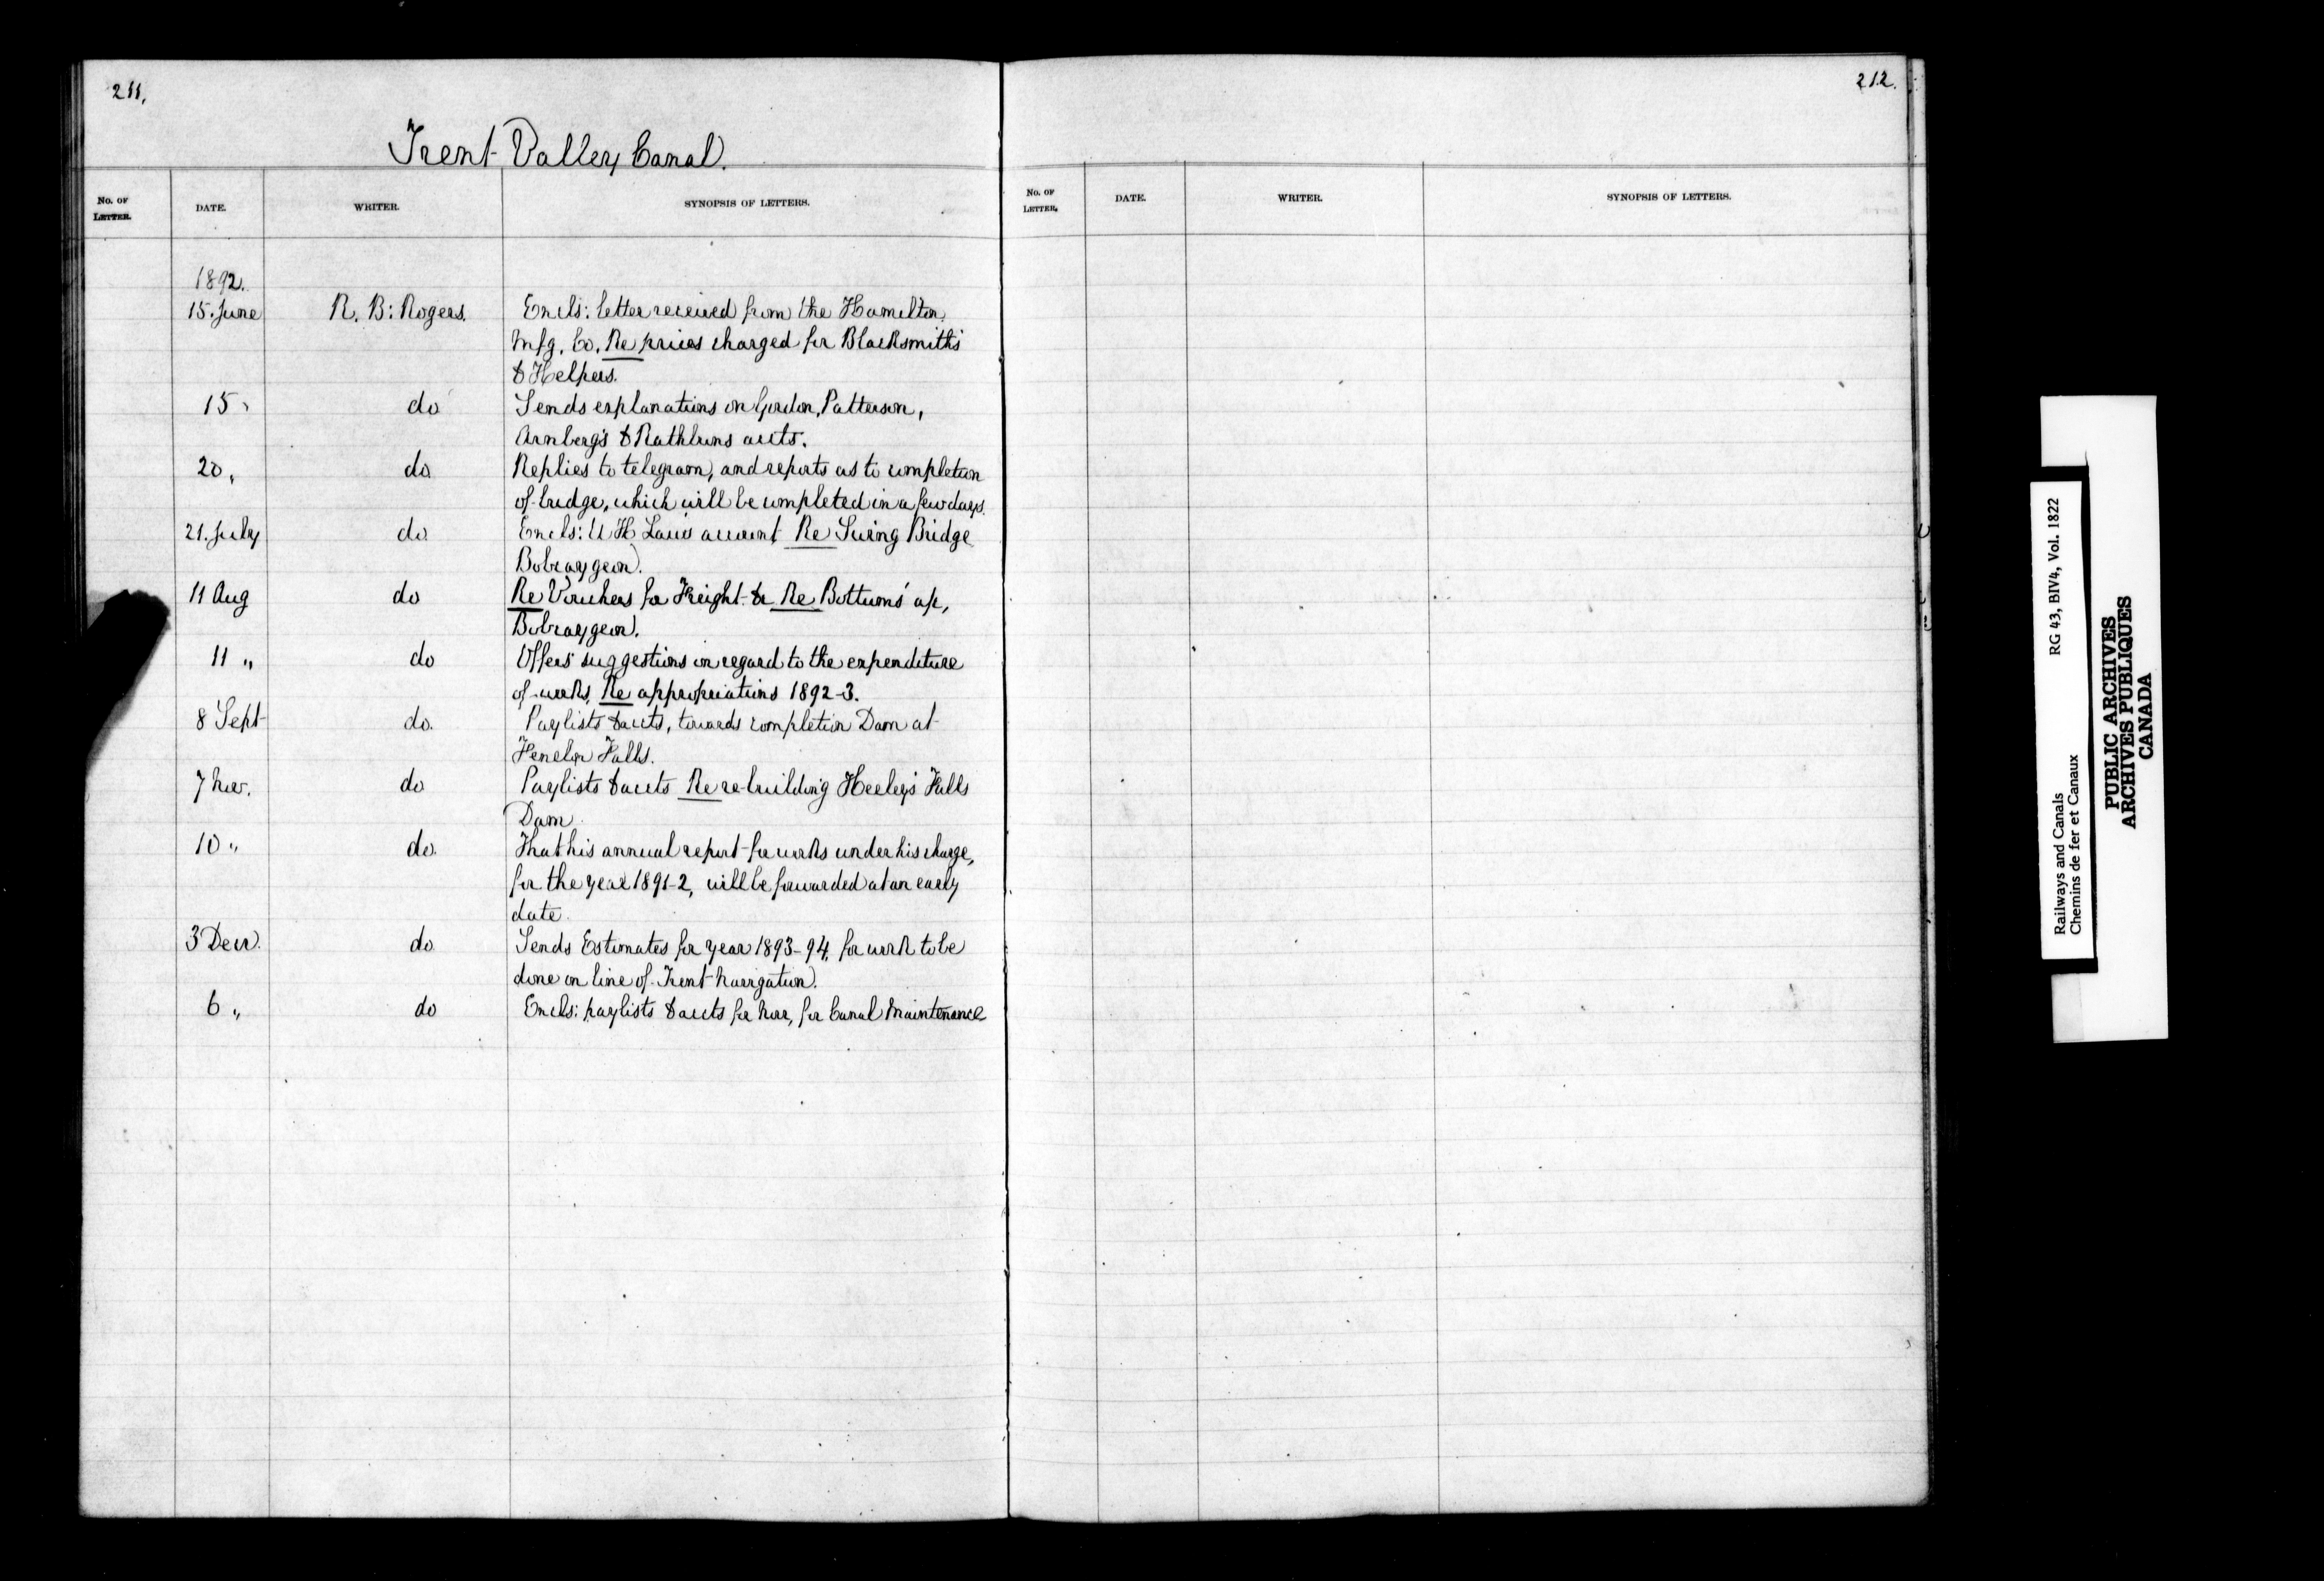 211.
Trent Valley Canal.
No. OF LETTER. DATE. WRITER. SYNOPSIS OF LETTERS.
1892.
15. June R. B: Rogers. Encls: letter received from the Hamilton
Mfg. Co. Re prices charged for Blacksmiths
& Helpers.
15 " do Sends explanations on Gordon, Patterson,
Arnberg's & Rathbuns accts.
20 " do. Replies to telegram, and reports as to completion
of bridge, which will be completed in a few days.
21. July do. Encls: account Re Swing Bridge
Bobcaygeon.
11 Aug do Re Vouchers for Freight & Re Bottums' a/c,
Bobcaygeon.
11 " do Offers suggestions in regard to the expenditure
of works, Re appropriations 1892-3.
8 Sept do. Paylists & accts, towards completion Dam at
Fenelon Falls.
7 Nov. do Paylists & accts Re re-building Heeley's Falls
Dam
10 " do. That his annual report for works under his charge,
for the year 1891-2, will be forwarded at an early
date.
3 Decr. do Sends Estimates for year 1893-94, for work to be
done on line of Trent Navigation.
6 " do Encls: paylists & accts for Nov, for Canal Maintenance
212.
No. OF LETTER. DATE. WRITER. SYNOPSIS OF LETTERS.
Railways and Canals RG 43, BIV4, Vol. 1822
Chemins de fer et Canaux
PUBLIC ARCHIVES
ARCHIVES PUBLIQUES
CANADA